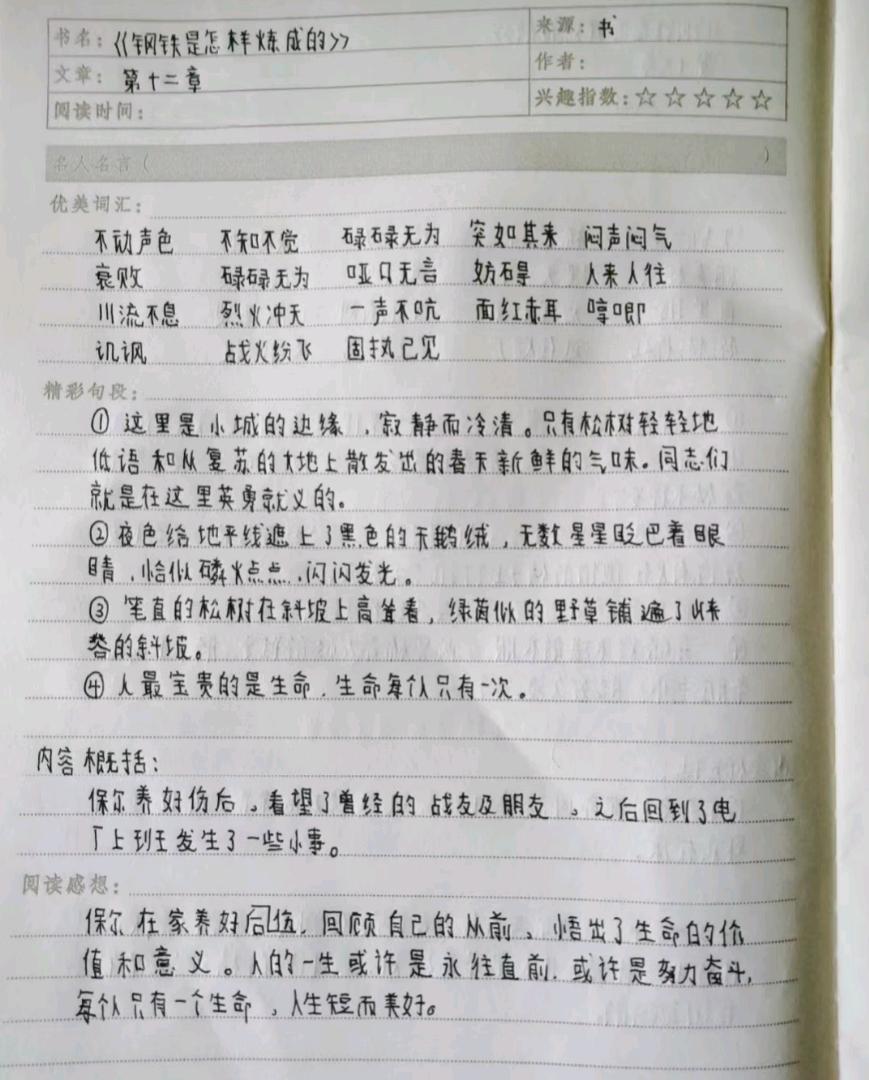 书名：《钢铁是怎样炼成的》 来源：书
文章：第十二章 作者：
阅读时间： 兴趣指数：☆☆☆☆☆
名人名言（ ）
优美词汇：
不动声色 不知不觉 碌碌无为 突如其来 闷声闷气
衰败 碌碌无为 哑口无言 妨碍 人来人往
川流不息 烈火冲天 一声不吭 面红赤耳 嘚唧
讥讽 战火纷飞 固执己见
精彩句段：
① 这里是小城的边缘，寂静而冷清。只有松树轻轻地
低语和从复苏的大地上散发出的春天新鲜的气味。同志们
就是在这里英勇就义的。
② 夜色给地平线遮上了黑色的天鹅绒，无数星星眨巴着眼
睛，恰似磷火点点，闪闪发光。
③ 笔直的松树在斜坡上高耸着，绿茵似的野草铺遍了峡
谷的斜坡。
④ 人最宝贵的是生命，生命每个人只有一次。
内容概括：
保尔养好伤后，看望了曾经的战友及朋友，之后回到了电
厂上班发生了一些小事。
阅读感想：
保尔在家养好后，回顾自己的从前，悟出了生命的价
值和意义。人的一生或许是永往直前，或许是努力奋斗，
每个人只有一个生命，人生短而美好。